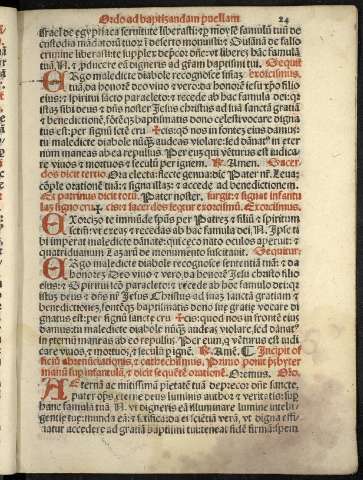 Ordo ad baptizandam puellam 24
israel de egyptiaca seruitute liberasti: ⁊ p moyse famulū tuū de
custodia mādatorū tuorū ī deserto monuisti: ⁊ Susānā de falso
crimine liberasti: te supplex dep̄cor dn̄e: vt liberes hāc famulā
tuā. N. ⁊ pducere eā digneris ad grām baptismi tui. Sequit̄
Ergo maledicte diabole recognosce sniaz exorcismus.
tuā, da honorē deo viuo ⁊ vero: da honorē iesu xp̄o filio
eius: ⁊ spiritui sācto paracleto: ⁊ recede ab hac famula dei: q̄z
istāz sibi deus ⁊ dn̄s noster Jesus christus ad suā sanctā gratiā
⁊ benedictionē, fontēqz baptismatis dono celesti vocare digna
tus est: per signū istē cru ✠ cis: qd̄ nos in fontez eius damus:
tu maledicte diabole nūqz̄ audeas violare: sed dānat? in eter
num maneas ab ea repulsus. Per eum qui vēturus est iudica
re viuos ⁊ mortuos ⁊ seculū per ignem. ℟. Amen. Sacer
dos dicit tertio. Ora electa: flecte genua: dic Pater nr̄. Leua:
cōple orationē tuā: ⁊ signa illaz: ⁊ accede ad benedictionem.
Et patrinus dicit totū. Pater noster. surgit: ⁊ signat infantu
las signo crucis. Exorcismus.
Exorcizo te immūde spūs per Patrez ⁊ filiū ⁊ spiritum
sctm̄: vt exeas ⁊ recedas ab hac famula dei. N. Ipse ti
bi imperat maledicte dānate: qui ceco nato oculos aperuit: ⁊
quatriduanum Lazarū de monumento suscitauit. Sequitur:
Ergo maledicte diabole recognosce sententiā tuā: ⁊ da
honorez Deo viuo ⁊ vero, da honorē Jesu christo filio
eius: ⁊ Spiritui sctō paracleto: ⁊ recede ab hoc famulo dei: qz
istuz deus ⁊ dn̄s nr̄ Jesus Christus ad suaz sanctā gratiam ⁊
benedictionez, fontēqz baptismatis dono sue gratie vocare di
gnatus est: per signū sanctē cru ✠ cis: quod nos in frontē eius
damus: tu maledicte diabole nūqz̄ audeas violare, sed dānat?
in eternū maneas ab eo repulsus. Per eum, q̄ vēturus est iudi
care viuos ⁊ mortuos, ⁊ seculū p ignē. ℟. Amē. ¶ Incipit of
ficiū abrenūciationis ⁊ cathecismus. Primo ponit p̄sbyter
manū sup̄ infantulā, ⁊ dicit sequētē orationē. Oremus. Oro.
Aeternā ac iustissimā pietatē tuā deprecor dn̄e sancte,
pater op̄s, eterne deus luminis auctor ⁊ veritatis: sup̄
hanc famulā tuā. N. vt digneris eā illuminare lumine intelli
gentie tue: munda eā: ⁊ sctifica: da ei sciētiā verā, vt digna effi
ciatur accedere ad gratiā baptismi tui: teneat fidē firmā: spem